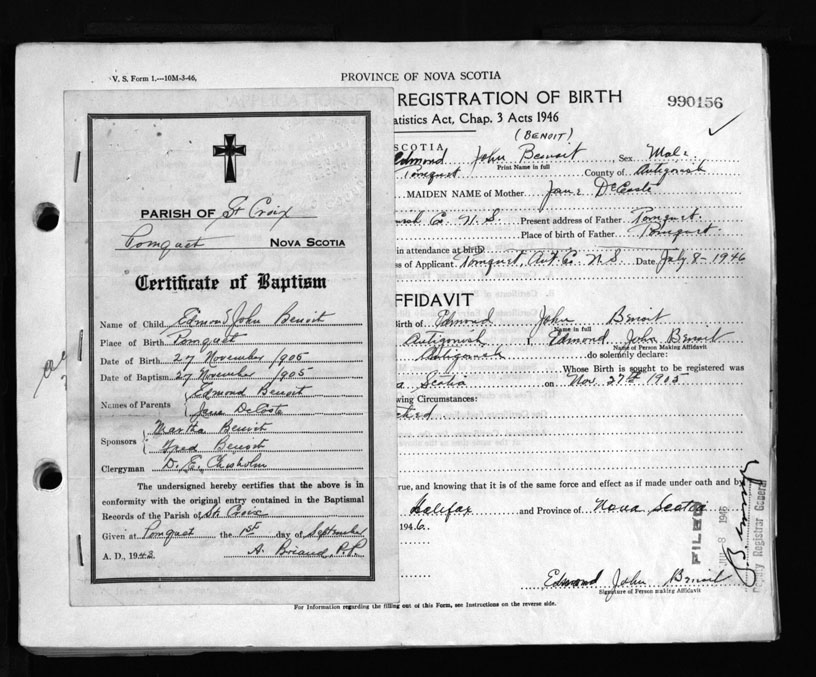 V. S. Form 1.---10M-3-46,
PROVINCE OF NOVA SCOTIA
REGISTRATION OF BIRTH
990156
tatistics Act, Chap. 3 Acts 1946
(BENOIT)
SCOTIA
Edmond John Benoit Sex Male
Print Name in full
Pomquet County of Antigonish
MAIDEN NAME of Mother Jane DeCoste
Co N.S. Present address of Father Pomquet
Place of birth of Father Pomquet
in attendance at birth
ss of Applicant Pomquet, Ant. Co. N.S. Date July 8-1946
FFIDAVIT
Birth of Edmond John Benoit
Name in full
Antigonish I, Edmond John Benoit
Name of Person Making Affidavit
Antigonish do solemnly declare:
Whose Birth is sought to be registered was
a Scotia on Nov. 27th 1905
wing Circumstances:
rue, and knowing that it is of the same force and effect as if made under oath and by
Halifax and Province of Nova Scotia
1946.
FILED
JUL 8 1946
Deputy Registrar General
Edmond John Benoit
Signature of Person making Affidavit
For Information regarding the filling out of this Form, see Instructions on the reverse side.
PARISH OF St Croix
Pomquet NOVA SCOTIA
Certificate of Baptism
Name of Child Edmond John Benoit
Place of Birth Pomquet
Date of Birth 27 November 1905
Date of Baptism 27 November 1905
Names of Parents Edmond Benoit
Jane DeCoste
Sponsors Martha Benoit
Fred Benoit
Clergyman D. E. Chisholm
The undersigned hereby certifies that the above is in
conformity with the original entry contained in the Baptismal
Records of the Parish of St. Croix
Given at Pomquet the 1st day of September
A. D., 1943 A. Briand, P.P.